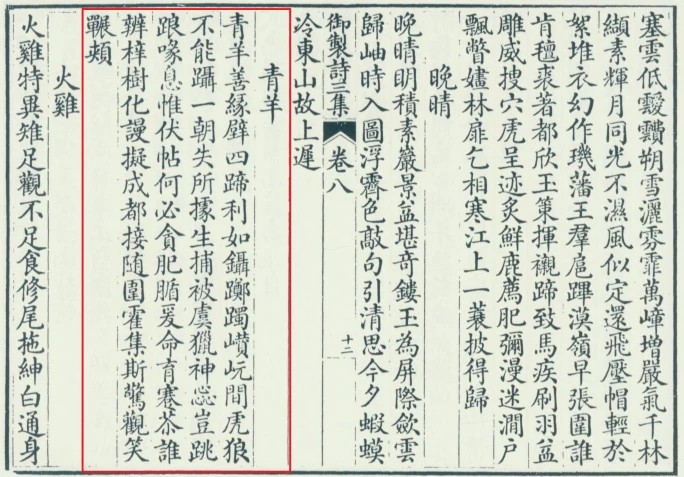 塞雲低靉靆朔雪灑雰霏萬嶂增嚴氣千林
纈素輝月同光不濕風似定還飛壓帽輕於
絮堆衣幻作璣藩王羣扈蹕漠嶺早張圍誰
肯氊裘著都欣玉策揮襯蹄致馬疾刷羽益
雕威搜穴虎呈迹炙鮮鹿薦肥彌漫迷澗户
飄瞥嫿林扉乞相寒江上一蓑披得歸
晚晴
晚晴眀積素巖景益堪奇鏤玉為屏際斂雲
歸岫時入圖浮霽色敲句引清思今夕蝦蟆
御製詩三集 卷八 十二
冷東山故上遲
青羊
青羊善緣壁四蹄利如鑷躑躅巑岏間虎狼
不能躡一朝失所據生捕被虞獵神蕊豈跳
踉喙息惟伏帖何必貪肥腯爰命育塞苶誰
辨梓樹化謾擬成都接隨圍霍集斯驚觀笑
囅頰
火雞
火雞特異雉足觀不足食修尾拖紳白通身